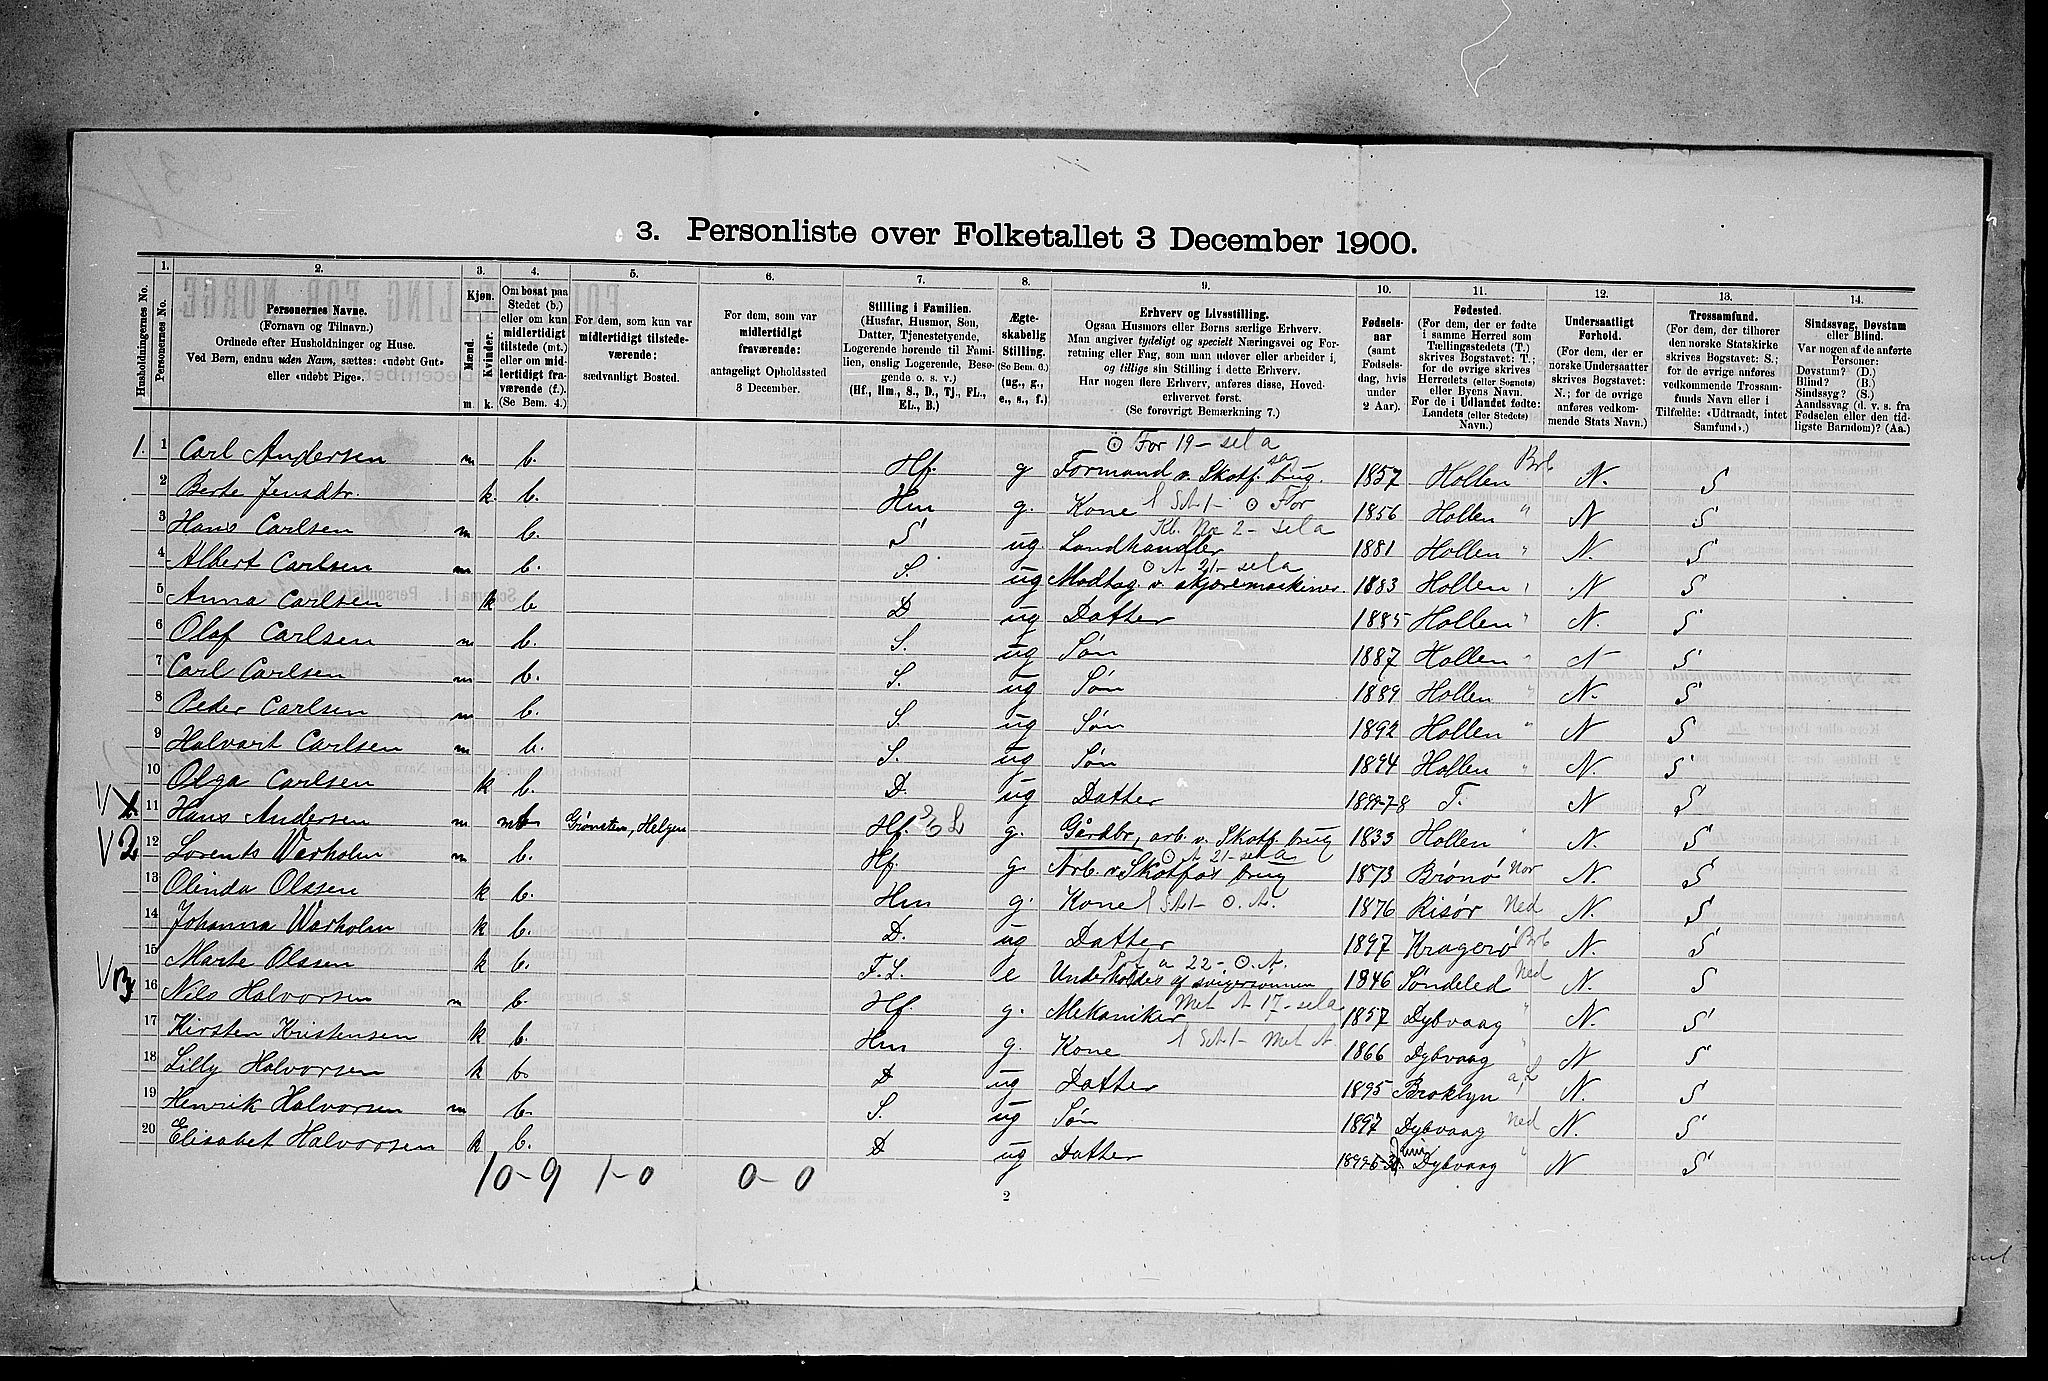 3. Personliste over Folketallet 3 December 1900.
Husholdningernes No.
1. Personernes No.
2. Personernes Navne. (Fornavn og Tilnavn.) Ordnede efter Husholdninger og Huse. Ved Børn, endnu uden Navn, sættes: «udøbt Gut» eller «udøbt Pige».
3. Kjøn. Mænd. Kvinder. m. k.
4. Om bosat paa Stedet (b.) eller om kun midlertidigt tilstede (mt.) eller om midlertidigt fraværende (f.). (Se Bem. 4.)
5. For dem, som kun var midlertidigt tilstedeværende: sædvanligt Bosted.
6. For dem, som var midlertidigt fraværende: antageligt Opholdssted 3 December.
7. Stilling i Familien. (Husfar, Husmor, Søn, Datter, Tjenestetyende, Logerende hørende til Familien, enslig Logerende, Besøgende o. s. v.) (Hf., Hm., S., D., Tj., FL., EL., B.)
8. Ægteskabelig Stilling. (Se Bem. 6.) (ug., g., e., s., f.)
9. Erhverv og Livsstilling. Ogsaa Husmors eller Børns særlige Erhverv. Man angiver tydeligt og specielt Næringsvei og Forretning eller Fag, som man udøver eller arbeider i, og tillige sin Stilling i dette Erhverv. Har nogen flere Erhverv, anføres disse, Hovederhvervet først. (Se forøvrigt Bemærkning 7.)
10. Fødselsaar (samt Fødselsdag, hvis under 2 Aar).
11. Fødested. (For dem, der er fødte i samme Herred som Tællingsstedets (T.) skrives Bogstavet: T.; for de øvrige skrives Herredets (eller Sognets) eller Byens Navn. For de i Udlandet fødte: Landets (eller Stedets) Navn.)
12. Undersaatligt Forhold. (For dem, der er norske Undersaatter skrives Bogstavet: N.; for de øvrige anføres vedkommende Stats Navn.)
13. Trossamfund. (For dem, der tilhører den norske Statskirke skrives Bogstavet: S.; for de øvrige anføres vedkommende Trossamfunds Navn eller i Tilfælde: «Udtraadt, intet Samfund».)
14. Sindssvag, Døvstum eller Blind. Var nogen af de anførte Personer: Døvstum? (D.) Blind? (B.) Sindssyg? (S.) Aandssvag (d. v. s. fra Fødselen eller den tidligste Barndom)? (Aa.)
1. 1 Carl Andersen m b. Hf. g Formand v. Skotf. brug. 1857 Hollen N. S
2 Berte Jensdtr. k. b. Hm g. Kone 1856 Hollen " N S
3 Hans Carlsen m b. S ug. Landhandler 1881 Hollen " N. S
4 Albert Carlsen m b. S. ug Modtag. v. skjæremaskiner 1883 Hollen " N S
5 Anna Carlsen k b D ug Datter 1885 Hollen " N. S
6 Olaf Carlsen m b. S. ug Søn 1887 Hollen " N S
7 Carl Carlsen m b. S. ug Søn 1889 Hollen " N. S
8 Peder Carlsen m b. S. ug Søn 1892 Hollen " N S
9 Halvart Carlsen m b. S. ug Søn 1894 Hollen " N. S
10 Olga Carlsen k b. D. ug Datter 1899-7-8 T. N S
11 Hans Andersen m mt Helgen Hf. g. Gårdbr, arb. v. Skotf. brug 1833 Hollen " N. S
2 12 Lorents Warholm m b. Hf. g Arb. v. Skotfos brug 1873 Brønø Nor N. S
13 Olinda Olssen k b. Hm g. Kone 1876 Risør Ned N. S
14 Johanna Warholm k b. D. ug Datter 1897 Kragerø Brb N. S
15 Marte Olssen k b. F.L. e Underholdes af svigersønnen 1846 Søndeled Ned N. S
3 16 Nils Halvorsen m b. Hf. g. Mekaniker 1857 Dybvaag " N. S
17 Kirsten Kristensen k b. Hm g. Kone 1866 Dybvaag " N S
18 Lilly Halvorsen k b. D ug Datter 1895 Broklyn N. S
19 Henrik Halvorsen m b. S. ug Søn 1897 Dybvaag Ned N. S
20 Elisabet Halvorsen k b. D ug Datter Dybvaag " N S
10-9 1-0 0-0
2